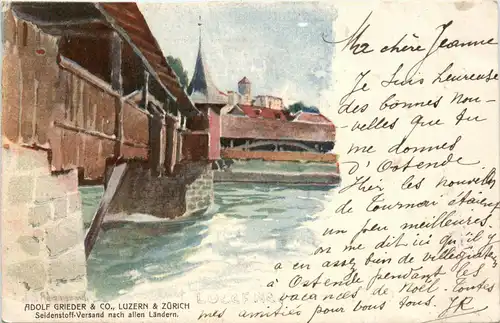 Ma chère Jeanne
Je suis heureuse
des bonnes nou-
velles que tu
me donnes
d'Ostende.
Hier les nouvelles
de Tournai étaient
un peu meilleures.
on me dit ici qu'il y
a en assez bien de villégiateurs
à Ostende pendant les
vacances de Noël. Toutes
mes amitiés pour vous tous.
ADOLF GRIEDER & CO., LUZERN & ZÜRICH
Seidenstoff-Versand nach allen Ländern.